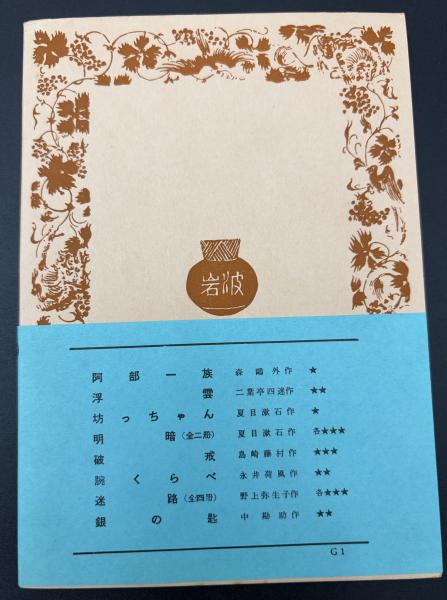 岩波
阿部一族 森鷗外作 ★
浮雲 二葉亭四迷作 ★★
坊っちゃん 夏目漱石作 ★
明暗(全二册) 夏目漱石作 各★★★
破戒 島崎藤村作 ★★★
腕くらべ 永井荷風作 ★★
迷路(全四册) 野上弥生子作 各★★★
銀の匙 中勘助作 ★★
G1